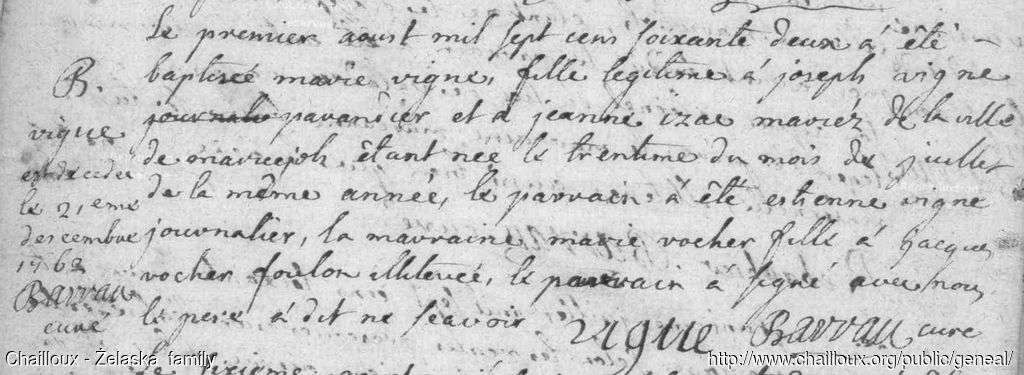 Le premier aoust mil sept cens soixante deux a été
B. baptisée marie vigne, fille legitime à joseph vigne
vigne journali parandier et à jeanne izac mariéz de la ville
est decedee de maruejols étant née le trentime du mois de juillet
le 21 eme de la même année, le parrain à été estienne vigne
descembre journalier, la marraine marie rocher fille à Jacques
1762 rocher foulon illiterée, le parrain à signé avec nous
Barrau le pere à dit ne scavoir
curé vigne Barrau curé
Chailloux - Żelaska family
http://www.chailloux.org/public/geneal/